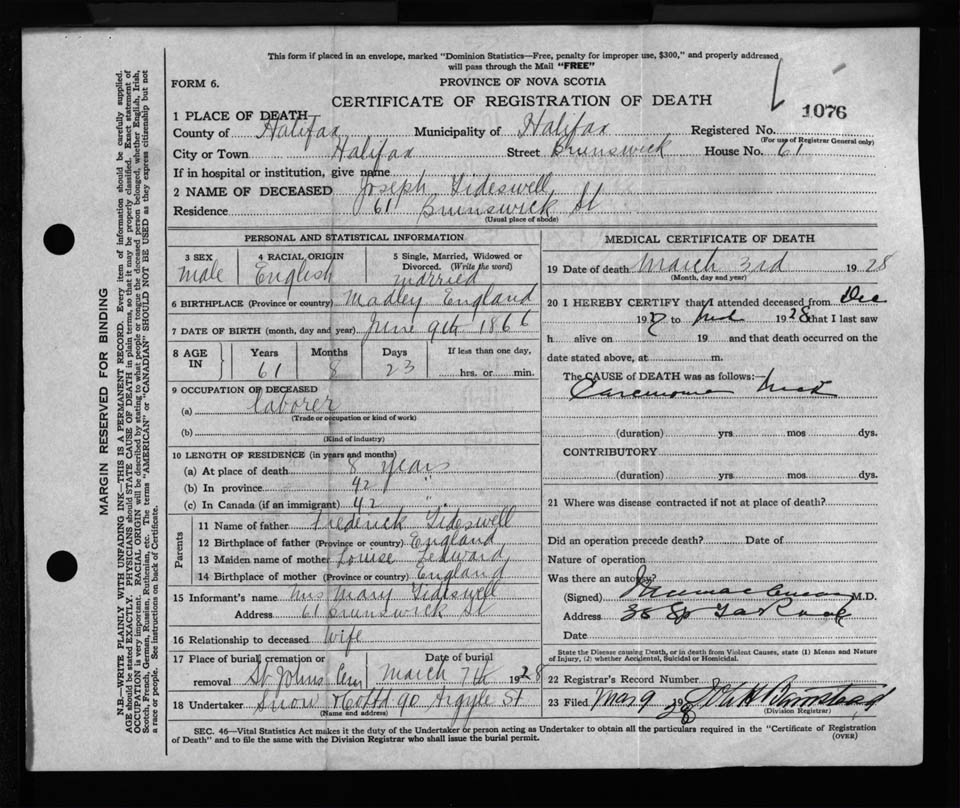 This form if placed in an envelope, marked "Dominion Statistics—Free, penalty for improper use, $300," and properly addressed
will pass through the Mail "FREE"
FORM 6.
PROVINCE OF NOVA SCOTIA
CERTIFICATE OF REGISTRATION OF DEATH
1076
1 PLACE OF DEATH
County of Halifax Municipality of Halifax Registered No.
(For use of Registrar General only)
City or Town Halifax Street Brunswick House No. 61
If in hospital or institution, give name
2 NAME OF DECEASED Joseph Tideswell
Residence 61 Brunswick St
(Usual place of abode)
PERSONAL AND STATISTICAL INFORMATION
3 SEX Male
4 RACIAL ORIGIN English
5 Single, Married, Widowed or Divorced. (Write the word) Married
6 BIRTHPLACE (Province or country) Madley England
7 DATE OF BIRTH (month, day and year) June 9th 1866
8 AGE IN
Years 61
Months 8
Days 23
If less than one day,
hrs. or min.
9 OCCUPATION OF DECEASED
(a) laborer
(Trade or occupation or kind of work)
(b)
(Kind of industry)
10 LENGTH OF RESIDENCE (in years and months)
(a) At place of death 8 years
(b) In province 42 "
(c) In Canada (if an immigrant) 42 "
Parents
11 Name of father Frederick Tideswell
12 Birthplace of father (Province or country) England
13 Maiden name of mother Louise Ledward
14 Birthplace of mother (Province or country) England
15 Informant's name Mrs Mary Tideswell
Address 61 Brunswick St
16 Relationship to deceased Wife
17 Place of burial, cremation or removal St Johns Cem
Date of burial March 7th 1928
18 Undertaker Snow & Co Ltd 90 Argyle St
(Name and address)
MEDICAL CERTIFICATE OF DEATH
19 Date of death March 3rd 1928
(Month, day and year)
20 I HEREBY CERTIFY that I attended deceased from Dec
1927 to 1928 that I last saw
h alive on 19 and that death occurred on the
date stated above, at m.
The CAUSE of DEATH was as follows:—
Carcinoma Neck
(duration) yrs mos dys.
CONTRIBUTORY
(duration) yrs mos dys.
21 Where was disease contracted if not at place of death?
Did an operation precede death? Date of
Nature of operation
Was there an autopsy?
(Signed) M.D.
Address
Date
State the Disease causing Death, or in death from Violent Causes, state (1) Means and Nature
of Injury, (2) whether Accidental, Suicidal or Homicidal.
22 Registrar's Record Number
23 Filed Mar 9 1928
(Division Registrar)
SEC. 46—Vital Statistics Act makes it the duty of the Undertaker or person acting as Undertaker to obtain all the particulars required in the "Certificate of Registration
of Death" and to file the same with the Division Registrar who shall issue the burial permit.
(OVER)
MARGIN RESERVED FOR BINDING
N.B.—WRITE PLAINLY WITH UNFADING INK—THIS IS A PERMANENT RECORD. Every item of information should be carefully supplied.
AGE should be stated EXACTLY. PHYSICIANS should STATE CAUSE OF DEATH in plain terms, so that it may be properly classified. Exact statement of
OCCUPATION is very important. RACIAL ORIGIN will be described by stating to what people or tongue the deceased person belonged, whether English, Irish,
Scotch, French, German, Russian, Ruthenian, etc. The terms "AMERICAN" or "CANADIAN" SHOULD NOT BE USED as they express citizenship but not
a race or people. See instructions on back of Certificate.